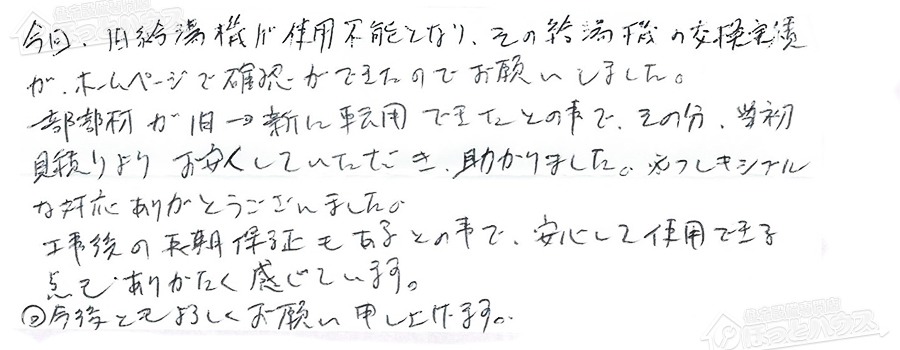 今回、旧給湯機が使用不能となり、その給湯機の交換実績
が、ホームページで確認ができたのでお願いしました。
一部部材が旧→新に転用できたとの事で、その分、当初
見積りよりお安くしていただき、助かりました。※フレキシブル
な対応ありがとうございました。
工事後の長期保証もあるとの事で、安心して使用できる
点もありがたく感じています。
◎今後ともよろしくお願い申し上げます。